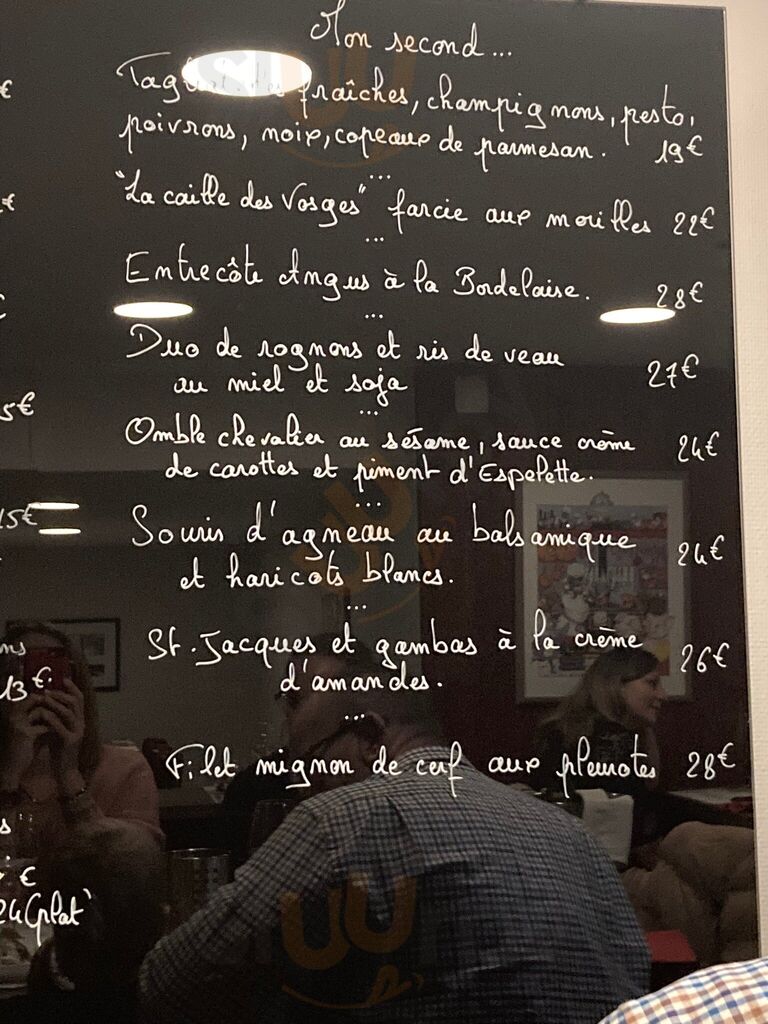 Mon second...
fraîches, champignons, pesto,
poivrons, noix, copeaux de parmesan. 19€
...
"La caille des Vosges" farcie aux morilles 22€
...
Entrecôte Angus à la Bordelaise. 28€
...
Duo de rognons et ris de veau
au miel et soja 27€
...
Omble chevalier au sésame, sauce crème 24€
de carottes et piment d'Espelette.
...
Souris d'agneau au balsamique
et haricots blancs. 24€
...
St. Jacques et gambas à la crème 26€
d'amandes.
...
Filet mignon de cerf aux pleurotes 28€
€
€
5€
15€
ns
13€.
s
€
24(plat)